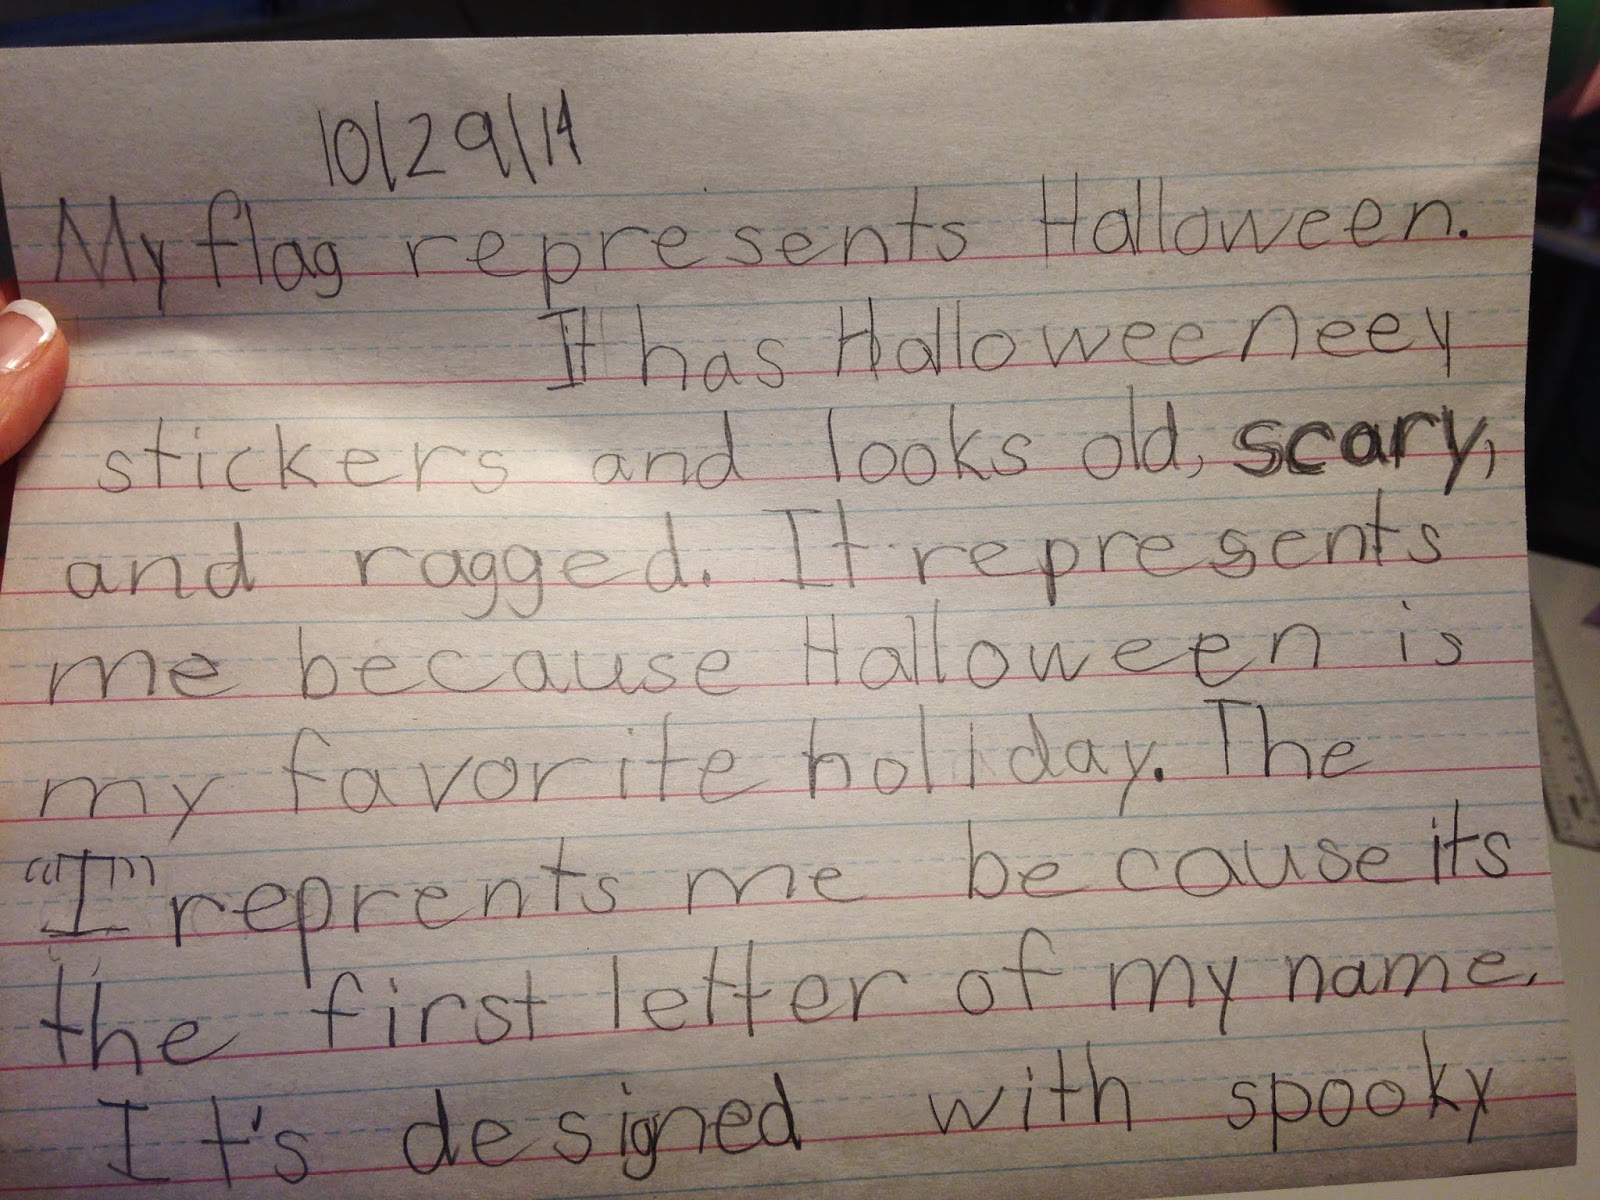 10/29/14
My flag represents Halloween.
It has Halloweeneey
stickers and looks old, scary,
and ragged. It represents
me because Halloween is
my favorite holiday. The
"I" reprents me because its
the first letter of my name.
It's designed with spooky